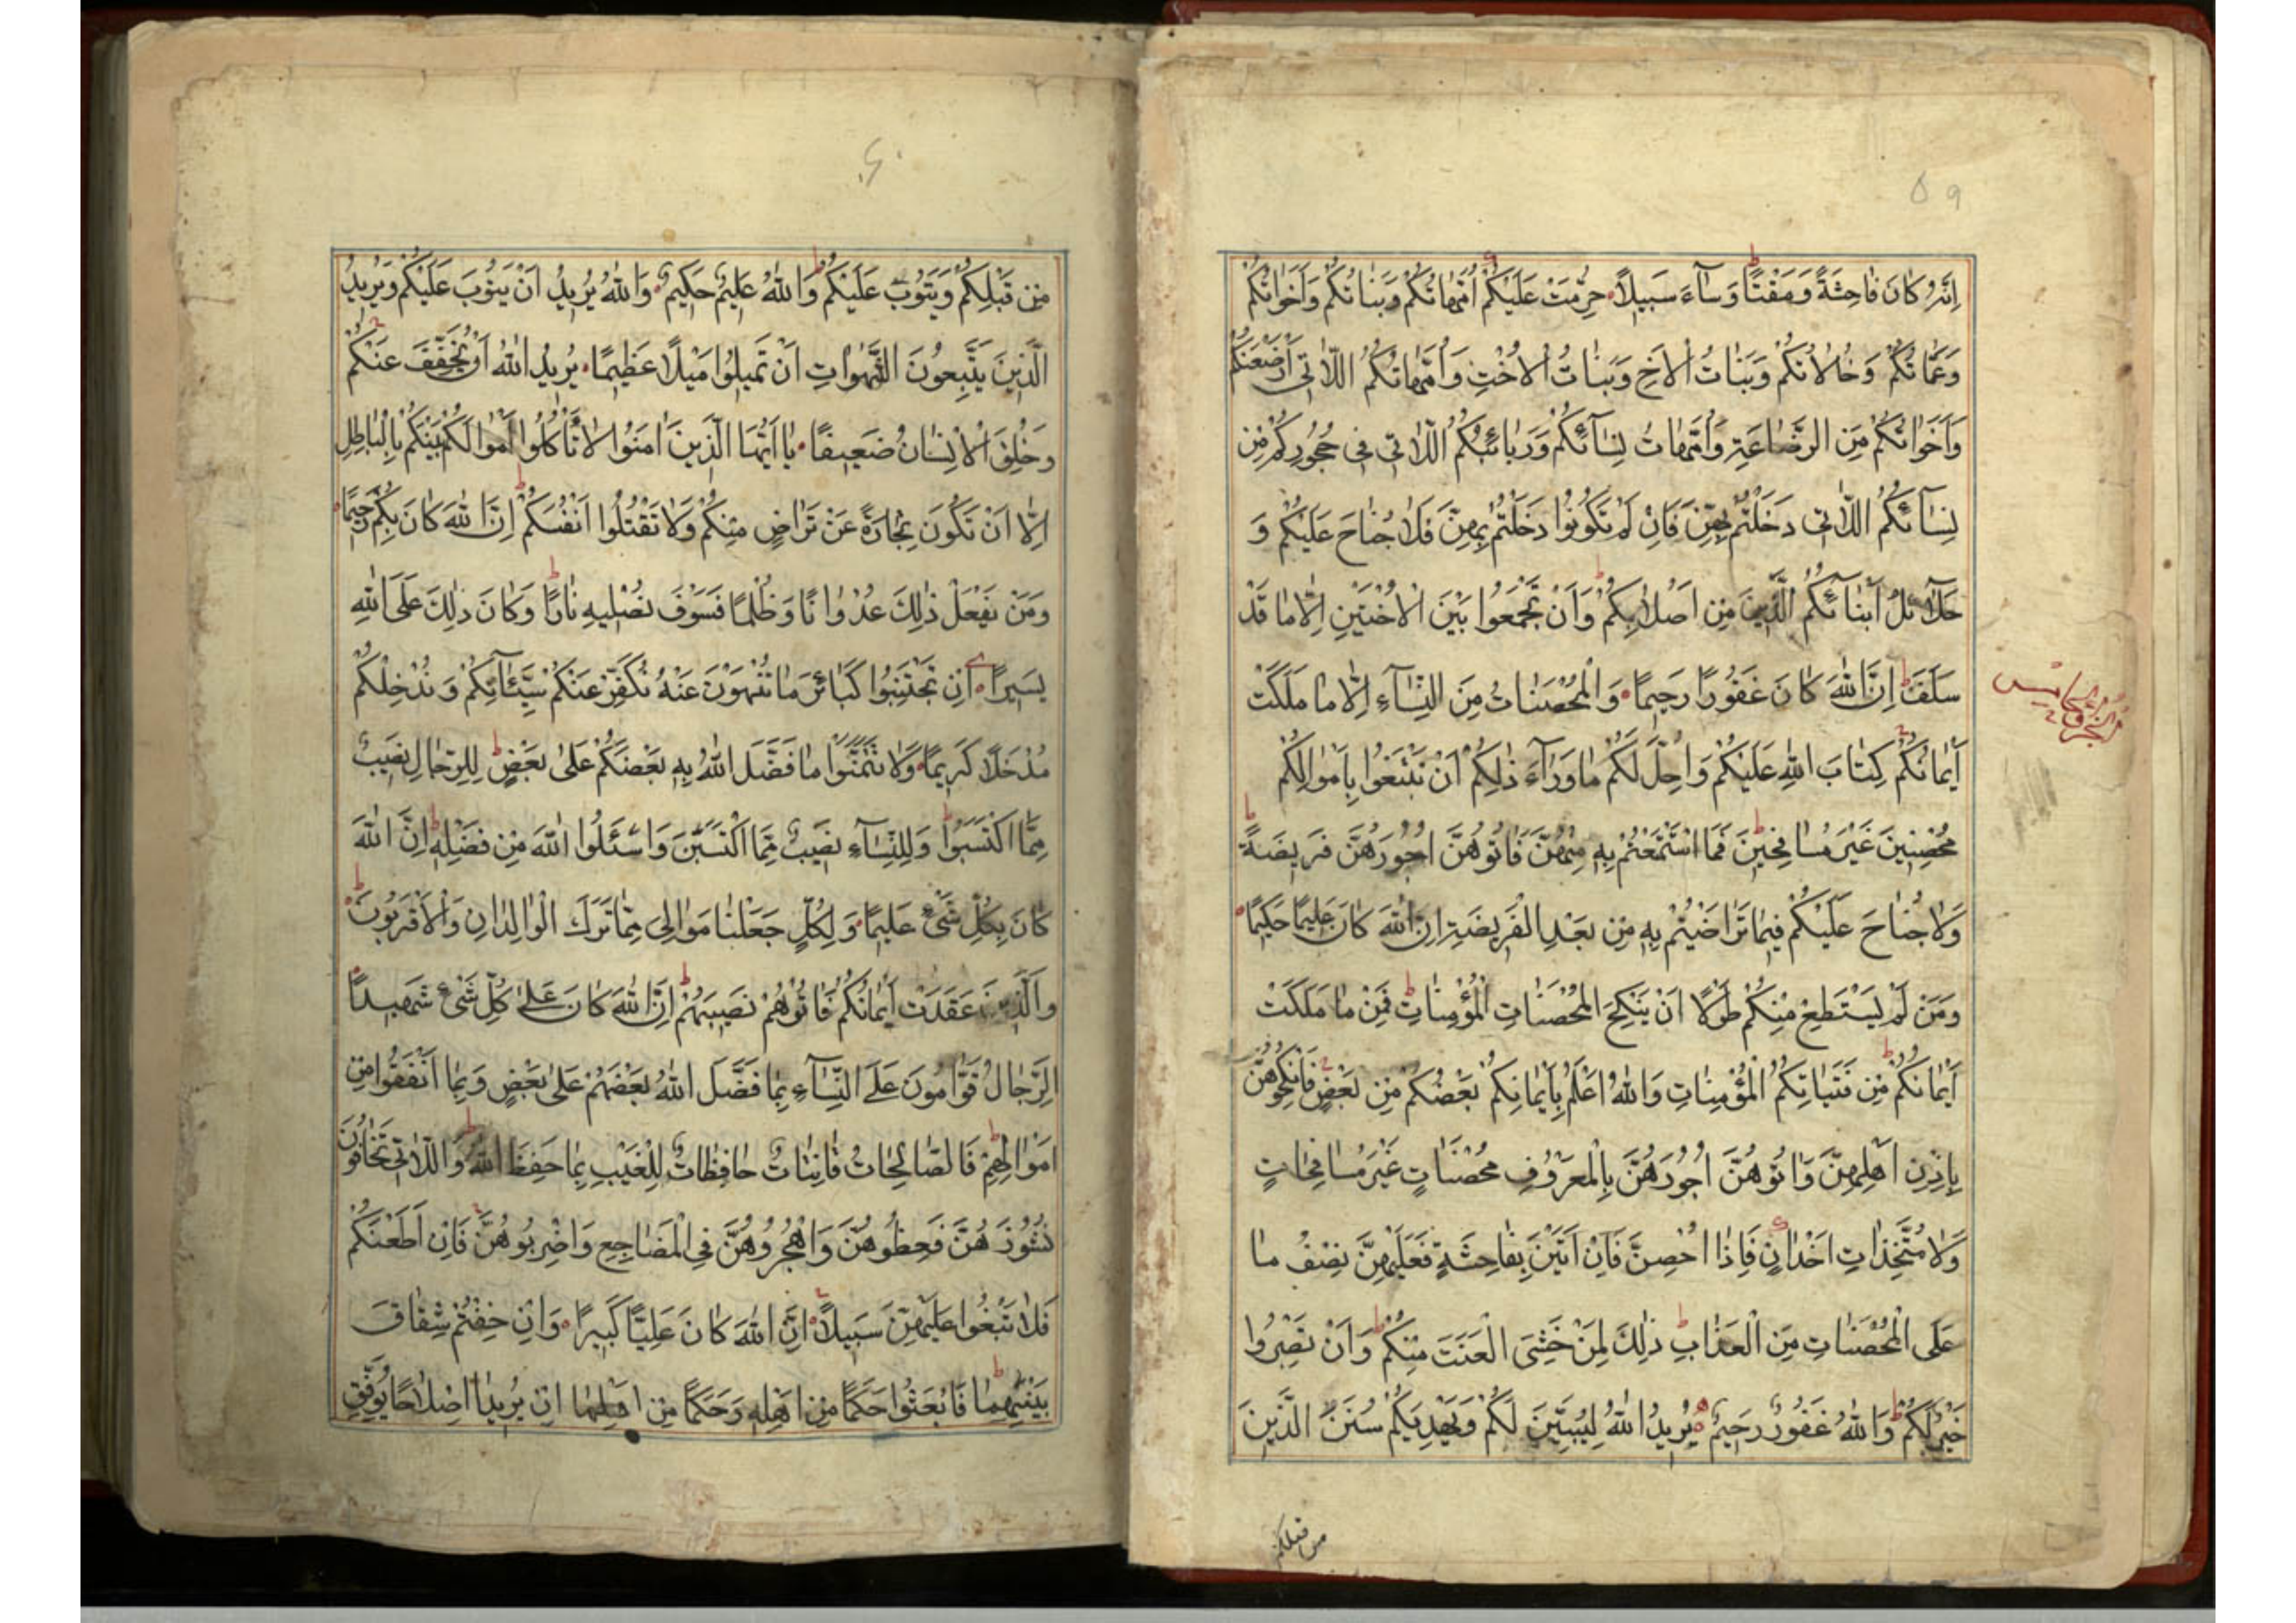 ٥٩
اِنَّهُ كٰانَ فٰاحِشَةً وَمَقْتًا وَسٰآءَ سَبيلاً حُرِّمَتْ عَلَيْكُمْ اُمَّهاتُكُمْ وَبَنٰاتُكُمْ وَاَخَوٰاتُكُمْ
وَعَمّٰاتُكُمْ وَخٰالٰاتُكُمْ وَبَنٰاتُ الْاَخِ وَبَنٰاتُ الْاُخْتِ وَاُمَّهاتُكُمُ اللّٰاتى اَرْضَعْنَكُمْ
وَاَخَوٰاتُكُمْ مِنَ الرَّضٰاعَةِ وَاُمَّهاتُ نِسٰآئِكُمْ وَرَبٰائِبُكُمُ اللّٰاتى فى حُجُورِكُمْ مِنْ
نِسٰآئِكُمُ اللّٰاتى دَخَلْتُمْ بِهِنَّ فَاِنْ لَمْ تَكُونُوا دَخَلْتُمْ بِهِنَّ فَلٰا جُنٰاحَ عَلَيْكُمْ وَ
حَلٰآئِلُ اَبْنٰآئِكُمُ الَّذينَ مِنْ اَصْلٰابِكُمْ وَاَنْ تَجْمَعُوا بَيْنَ الْاُخْتَيْنِ اِلّٰا مٰا قَدْ
سَلَفَ اِنَّ اللّٰهَ كٰانَ غَفُورًا رَحيمًا وَالْمُحْصَنٰاتُ مِنَ النِّسٰآءِ اِلّٰا مٰا مَلَكَتْ
الجزو الخامس
اَيْمٰانُكُمْ كِتٰابَ اللّٰهِ عَلَيْكُمْ وَاُحِلَّ لَكُمْ مٰا وَرٰآءَ ذٰلِكُمْ اَنْ تَبْتَغُوا بِاَمْوٰالِكُمْ
مُحْصِنينَ غَيْرَ مُسٰافِحينَ فَمَا اسْتَمْتَعْتُمْ بِهِ مِنْهُنَّ فَاٰتُوهُنَّ اُجُورَهُنَّ فَريضَةً
وَلٰا جُنٰاحَ عَلَيْكُمْ فيمٰا تَرٰاضَيْتُمْ بِهِ مِنْ بَعْدِ الْفَريضَةِ اِنَّ اللّٰهَ كٰانَ عَليمًا حَكيمًا
وَمَنْ لَمْ يَسْتَطِعْ مِنْكُمْ طَوْلًا اَنْ يَنْكِحَ الْمُحْصَنٰاتِ الْمُؤْمِنٰاتِ فَمِنْ مٰا مَلَكَتْ
اَيْمٰانُكُمْ مِنْ فَتَيٰاتِكُمُ الْمُؤْمِنٰاتِ وَاللّٰهُ اَعْلَمُ بِاٖيمٰانِكُمْ بَعْضُكُمْ مِنْ بَعْضٍ فَانْكِحُوهُنَّ
بِاِذْنِ اَهْلِهِنَّ وَاٰتُوهُنَّ اُجُورَهُنَّ بِالْمَعْرُوفِ مُحْصَنٰاتٍ غَيْرَ مُسٰافِحٰاتٍ
وَلٰا مُتَّخِذٰاتِ اَخْدٰانٍ فَاِذٰا اُحْصِنَّ فَاِنْ اَتَيْنَ بِفٰاحِشَةٍ فَعَلَيْهِنَّ نِصْفُ مٰا
عَلَى الْمُحْصَنٰاتِ مِنَ الْعَذٰابِ ذٰلِكَ لِمَنْ خَشِيَ الْعَنَتَ مِنْكُمْ وَاَنْ تَصْبِرُوا
خَيْرٌ لَكُمْ وَاللّٰهُ غَفُورٌ رَحيمٌ يُريدُ اللّٰهُ لِيُبَيِّنَ لَكُمْ وَيَهْدِيَكُمْ سُنَنَ الَّذينَ
من قبلكم
٦٠
مِنْ قَبْلِكُمْ وَيَتُوبَ عَلَيْكُمْ وَاللّٰهُ عَليمٌ حَكيمٌ وَاللّٰهُ يُريدُ اَنْ يَتُوبَ عَلَيْكُمْ وَيُريدُ
الَّذينَ يَتَّبِعُونَ الشَّهَوٰاتِ اَنْ تَميلُوا مَيْلًا عَظيمًا يُريدُ اللّٰهُ اَنْ يُخَفِّفَ عَنْكُمْ
وَخُلِقَ الْاِنْسٰانُ ضَعيفًا يٰا اَيُّهَا الَّذينَ اٰمَنُوا لٰا تَأْكُلُوا اَمْوٰالَكُمْ بَيْنَكُمْ بِالْبٰاطِلِ
اِلّٰا اَنْ تَكُونَ تِجٰارَةً عَنْ تَرٰاضٍ مِنْكُمْ وَلٰا تَقْتُلُوا اَنْفُسَكُمْ اِنَّ اللّٰهَ كٰانَ بِكُمْ رَحيمًا
وَمَنْ يَفْعَلْ ذٰلِكَ عُدْوٰانًا وَظُلْمًا فَسَوْفَ نُصْليهِ نٰارًا وَكٰانَ ذٰلِكَ عَلَى اللّٰهِ
يَسيرًا اِنْ تَجْتَنِبُوا كَبٰائِرَ مٰا تُنْهَوْنَ عَنْهُ نُكَفِّرْ عَنْكُمْ سَيِّئٰاتِكُمْ وَنُدْخِلْكُمْ
مُدْخَلًا كَريمًا وَلٰا تَتَمَنَّوْا مٰا فَضَّلَ اللّٰهُ بِهِ بَعْضَكُمْ عَلىٰ بَعْضٍ لِلرِّجٰالِ نَصيبٌ
مِمَّا اكْتَسَبُوا وَلِلنِّسٰآءِ نَصيبٌ مِمَّا اكْتَسَبْنَ وَاسْئَلُوا اللّٰهَ مِنْ فَضْلِهِ اِنَّ اللّٰهَ
كٰانَ بِكُلِّ شَيْءٍ عَليمًا وَلِكُلٍّ جَعَلْنٰا مَوٰالِيَ مِمّٰا تَرَكَ الْوٰالِدٰانِ وَالْاَقْرَبُونَ
وَالَّذينَ عَقَدَتْ اَيْمٰانُكُمْ فَاٰتُوهُمْ نَصيبَهُمْ اِنَّ اللّٰهَ كٰانَ عَلىٰ كُلِّ شَيْءٍ شَهيدًا
اَلرِّجٰالُ قَوّٰامُونَ عَلَى النِّسٰآءِ بِمٰا فَضَّلَ اللّٰهُ بَعْضَهُمْ عَلىٰ بَعْضٍ وَبِمٰا اَنْفَقُوا مِنْ
اَمْوٰالِهِمْ فَالصّٰالِحٰاتُ قٰانِتٰاتٌ حٰافِظٰاتٌ لِلْغَيْبِ بِمٰا حَفِظَ اللّٰهُ وَاللّٰاتى تَخٰافُونَ
نُشُوزَهُنَّ فَعِظُوهُنَّ وَاهْجُرُوهُنَّ فِي الْمَضٰاجِعِ وَاضْرِبُوهُنَّ فَاِنْ اَطَعْنَكُمْ
فَلٰا تَبْغُوا عَلَيْهِنَّ سَبيلًا اِنَّ اللّٰهَ كٰانَ عَلِيًّا كَبيرًا وَاِنْ خِفْتُمْ شِقٰاقَ
بَيْنِهِمٰا فَابْعَثُوا حَكَمًا مِنْ اَهْلِهِ وَحَكَمًا مِنْ اَهْلِهٰا اِنْ يُريدٰا اِصْلٰاحًا يُوَفِّقِ